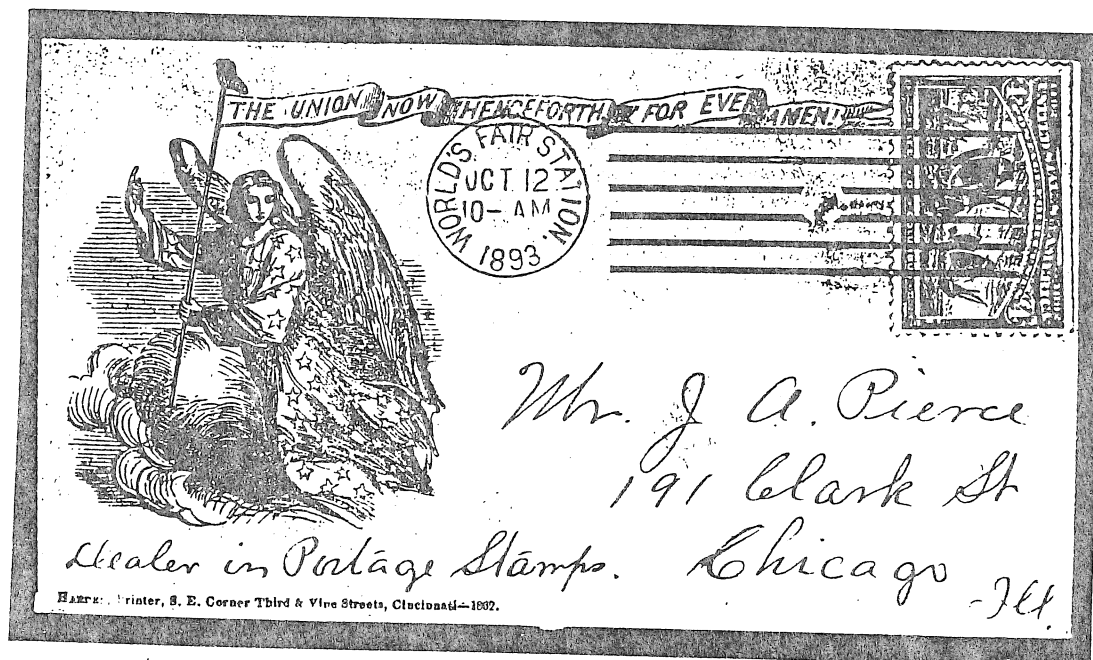 THE UNION NOW HENCEFORTH & FOR EVE AMEN!
WORLD'S FAIR STATION.
OCT 12
10-AM
1893
Mr. J. A. Pierce
191 Clark St
Chicago
-Ill.
Dealer in Postage Stamps.
Printer, S. E. Corner Third & Vine Streets, Cincinnati—1862.